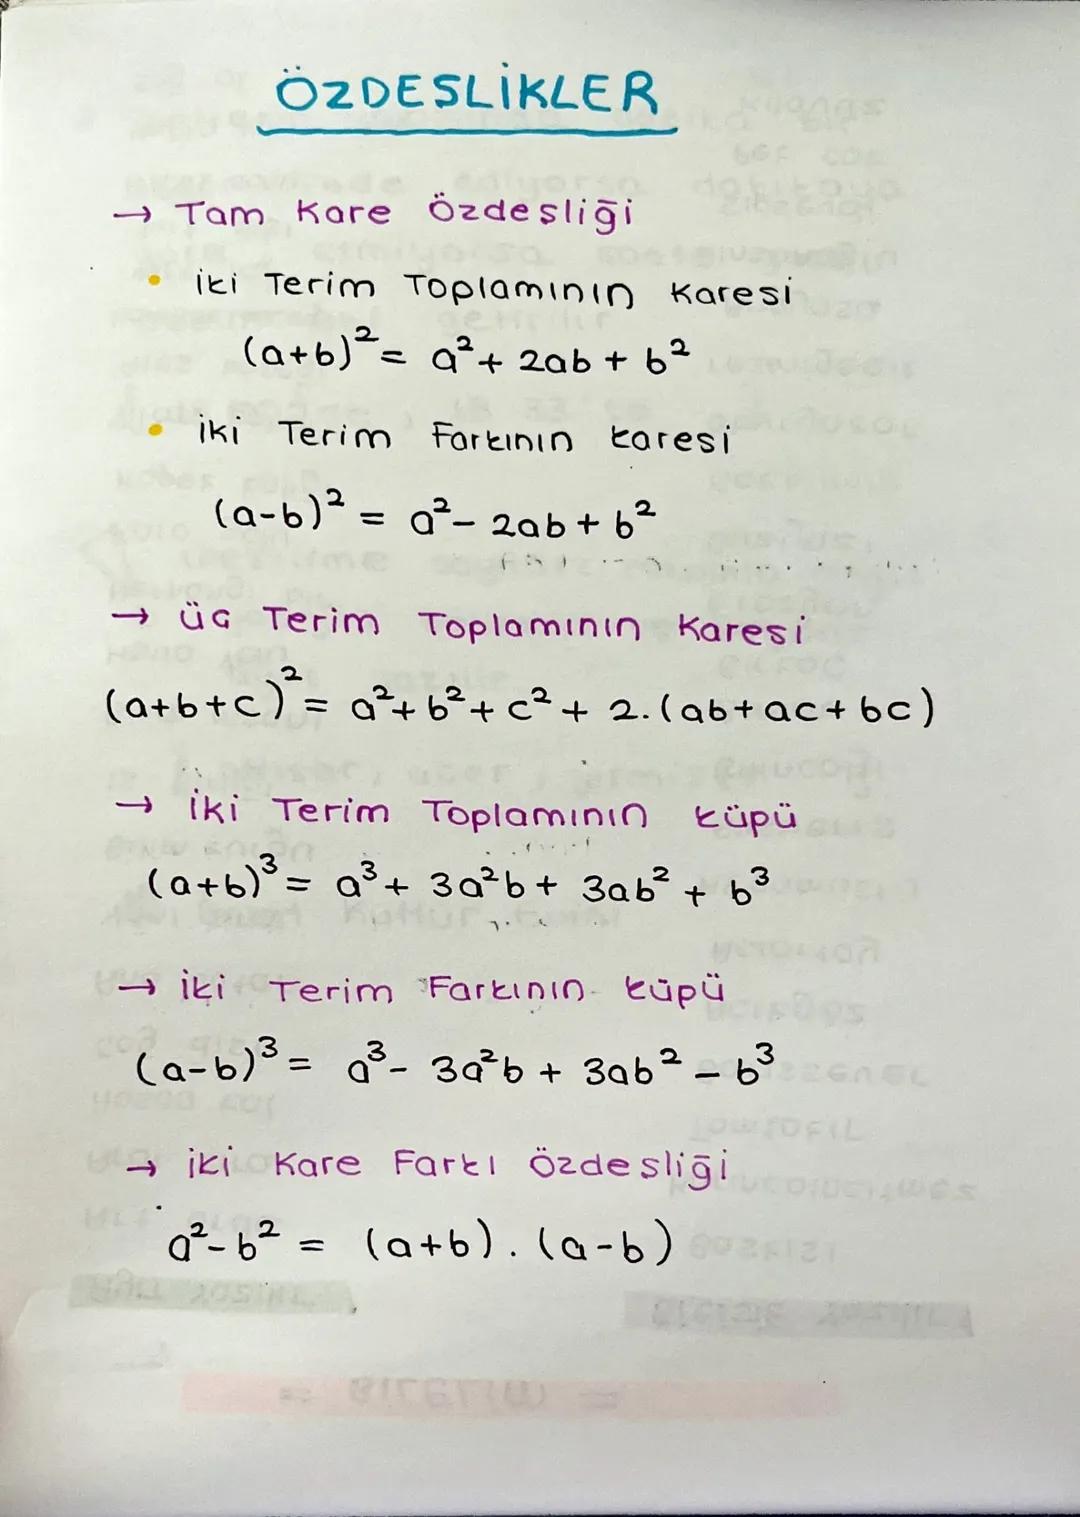 ÖZDESLİKLER
→ Tam Kare Özdeşliği
• İki Terim Toplamının Karesi
(a+b)² = a² + 2ab + b²
• İki Terim Farkının Karesi
(a-b)² = a² - 2ab + b²
→ üç Terim Toplamının Karesi
(a+b+c)² = a² + b² + c² + 2.(ab+ac+bc)
→ İki Terim Toplamının Küpü
(a+b)³ = a³ + 3a²b + 3ab² + b³
→ İki Terim Farkının Küpü
(a-b)³ = a³ - 3a²b + 3ab² - b³
→ İki Kare Farkı Özdesliği
a² - b² = (a+b).(a-b)